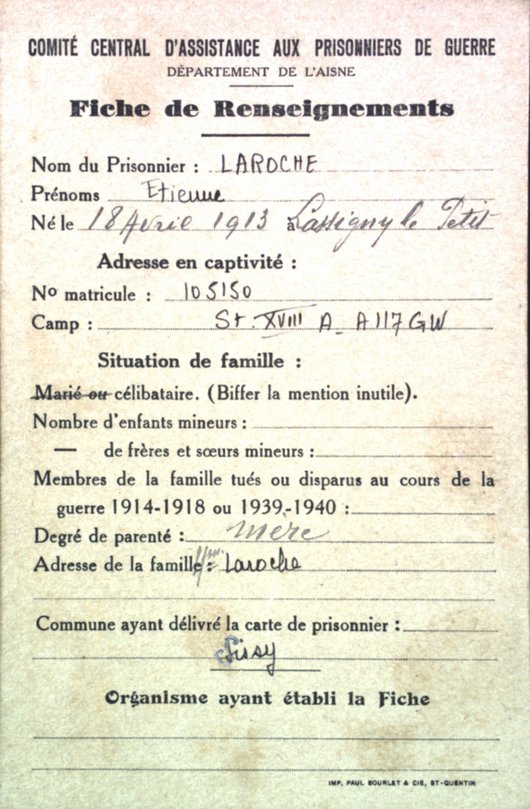 COMITÉ CENTRAL D'ASSISTANCE AUX PRISONNIERS DE GUERRE
DÉPARTEMENT DE L'AISNE
Fiche de Renseignements
Nom du Prisonnier : LAROCHE
Prénoms Etienne
Né le 18 Avril 1913 à Lassigny le Petit
Adresse en captivité :
No matricule : 105150
Camp : St. XVIII A_ A 117 GW
Situation de famille :
Marié ou célibataire. (Biffer la mention inutile).
Nombre d'enfants mineurs :
— de frères et sœurs mineurs :
Membres de la famille tués ou disparus au cours de la
guerre 1914-1918 ou 1939-1940 :
Degré de parenté : mère
Adresse de la famille : Laroche
Commune ayant délivré la carte de prisonnier :
Sissy
Organisme ayant établi la Fiche
IMP. PAUL BOURLET & CIE, ST-QUENTIN